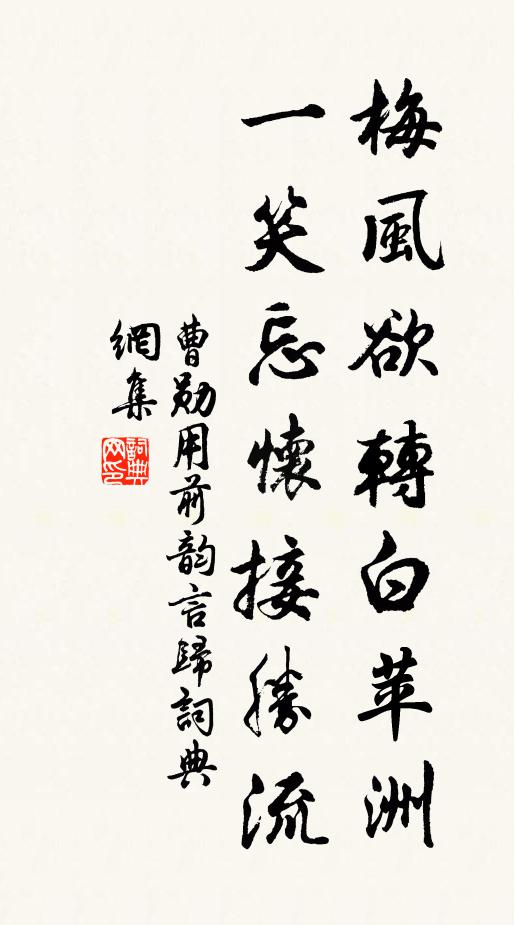 梅風欲轉白苹洲
一笑忘懷接勝流
曹勛用前韵言歸詞典
網集
詞典
网印